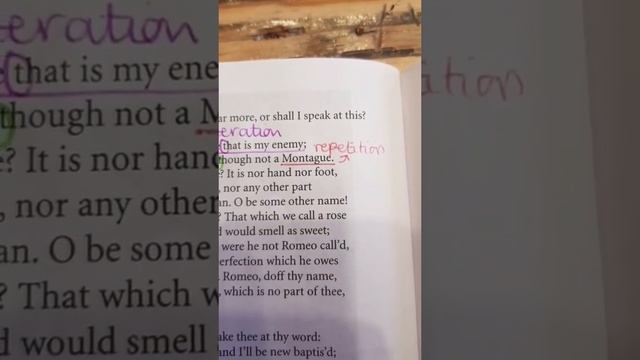 ar more, or shall I speak at this?
eration
that is my enemy; repetition
though not a Montague.
? It is nor hand nor foot,
, nor any other part
an. O be some other name!
? That which we call a rose
d would smell as sweet;
were he not Romeo call'd,
erfection which he owes
. Romeo, doff thy name,
, which is no part of thee,
ake thee at thy word:
and I'll be new baptis'd;
eration
that is my ene
though not a M
e? It is nor hand
, nor any other
an. O be some
? That which w
d would smell
ition